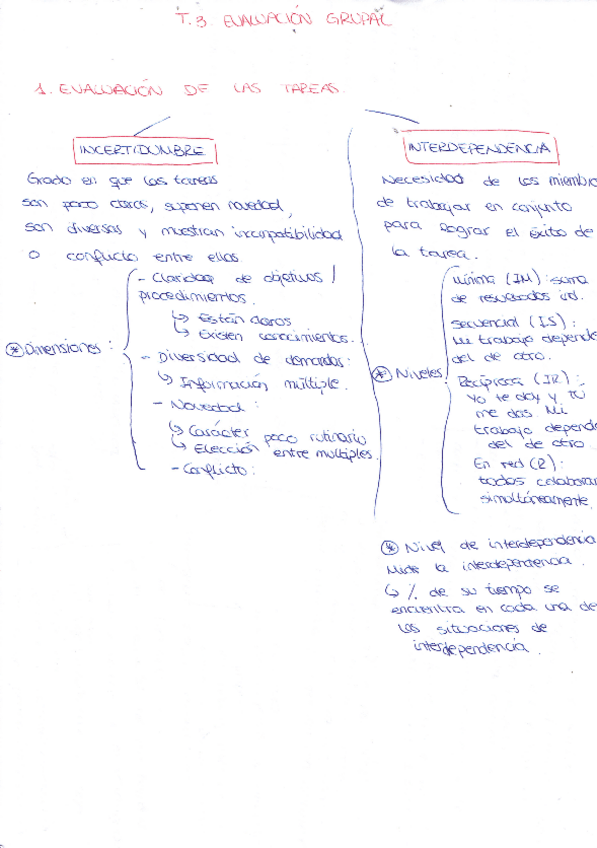 T.3. EVALUACIÓN GRUPAL
1. EVALUACIÓN DE LAS TAREAS.
INCERTIDUMBRE
Grado en que las tareas
son poco claras, suponen novedad,
son diversas y muestran incompatibilidad
o conflicto entre ellas
* Dimensiones:
- Claridad de objetivos /
procedimientos.
↳ Están claros
↳ Existen conocimientos.
- Diversidad de demandas:
↳ Información múltiple.
- Novedad:
↳ Carácter poco rutinario
↳ Elección entre múltiples.
- Conflicto:
INTERDEPENDENCIA
Necesidad de los miembro
de trabajar en conjunto
para lograr el éxito de
la tarea.
* Niveles
Mínima (IM): suma
de resultados ind.
Secuencial (IS):
Mi trabajo depende
del de otro.
Recíproca (IR):
Yo te doy y tú
me das. Mi
trabajo depende
del de otro
En red (R):
todos colaboran
simultáneamente
* Nivel de interdependencia
Mide la interdependencia.
↳ % de su tiempo se
encuentra en cada una de
las situaciones de
interdependencia.